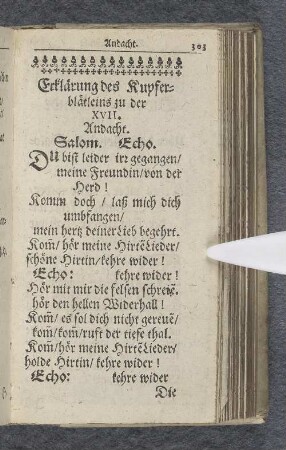 Andacht. 303
Erklärung des Kupfer-
blätleins zu der
XVII.
Andacht.
Salom. Echo.
DU bist leider irꝛ gegangen/
meine Freundin/von der
Herd!
Komm doch / laß mich dich
umbfangen/
mein hertz deiner Lieb begehrt.
Kom̃/ hör meine Hirtẽ Lieder/
schöne Hirtin/kehre wider!
Echo: kehre wider!
Hör mit mir die felsen schreiẽ.
hör den hellen Widerhall!
Kom̃/ es sol dich nicht gereuẽ/
kom̃/kom̃/ruft der tiefe thal.
Kom̃/hör meine Hirtẽ Lieder/
holde Hirtin/ kehre wider!
Echo: kehre wider
Die